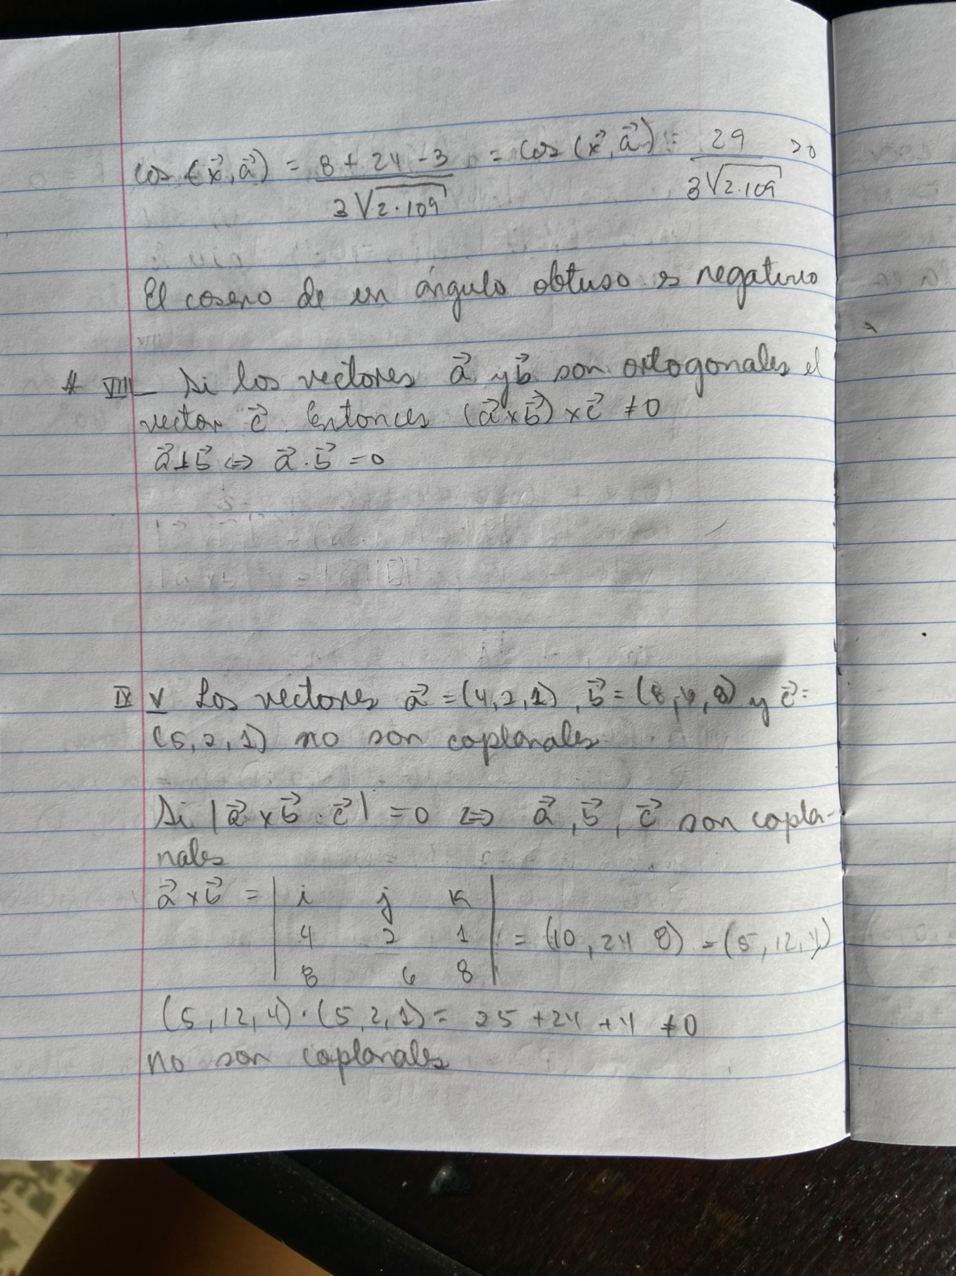 cos (x⃗,a⃗) = (8 + 24 - 3)/(3√2·109) = cos (x⃗,a⃗) = 29/(3√2·109) >0
El coseno de un ángulo obtuso es negativo
# VIII Si los vectores a⃗ y b⃗ son ortogonales el
vector c⃗ Entonces (a⃗xb⃗)xc⃗ ≠0
a⃗⊥b⃗ <=> a⃗.b⃗ =0
IX V Los vectores a⃗ =(4,2,1), b⃗ = (8, ,8) y c⃗=
(5,2,1) no son coplanales
Si |a⃗ x b⃗ . c⃗| =0 <=> a⃗, b⃗, c⃗ son copla-
nales
a⃗ x b⃗ = | i j k
4 2 1 | = (10, 24 8) = (5,12,4)
8 6 8
(5,12,4)·(5,2,1)= 25 +24 +4 ≠0
no son coplanales